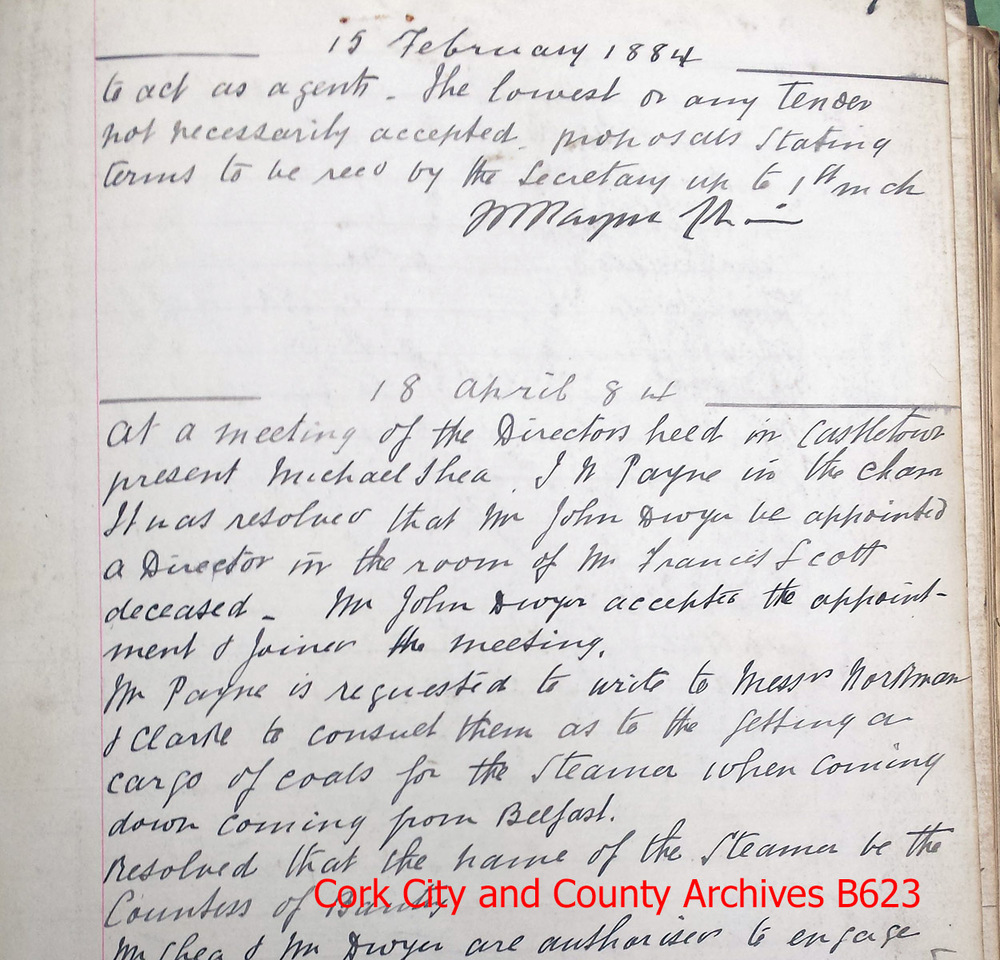 15 February 1884
to act as agents. The lowest or any Tender
not necessarily accepted. proposals Stating
terms to be recd by the Secretary up to 1st mch
J W Payne Chair
18 April 84
At a meeting of the Directors held in Castletown
present Michael Shea. J W Payne in the chair
It was resolved that Mr John Dwyer be appointed
a Director in the room of Mr Francis Scott
deceased - Mr John Dwyer accepted the appoint-
ment & joined the meeting.
Mr Payne is requested to write to Messrs Workman
& Clarke to consult them as to the getting a
cargo of coals for the Steamer when coming
down coming from Belfast.
Resolved that the name of the Steamer be the
Countess of Bantry
Mr Shea & Mr Dwyer are authorised to engage
Cork City and County Archives B623